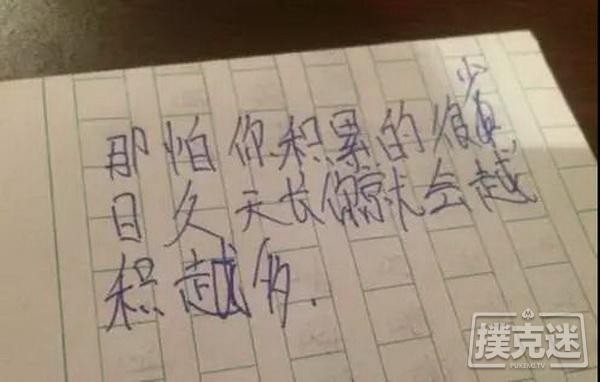 那怕你积累的很少
日久天长你就会越
积越多.
撲克迷
PUKEMI.TV